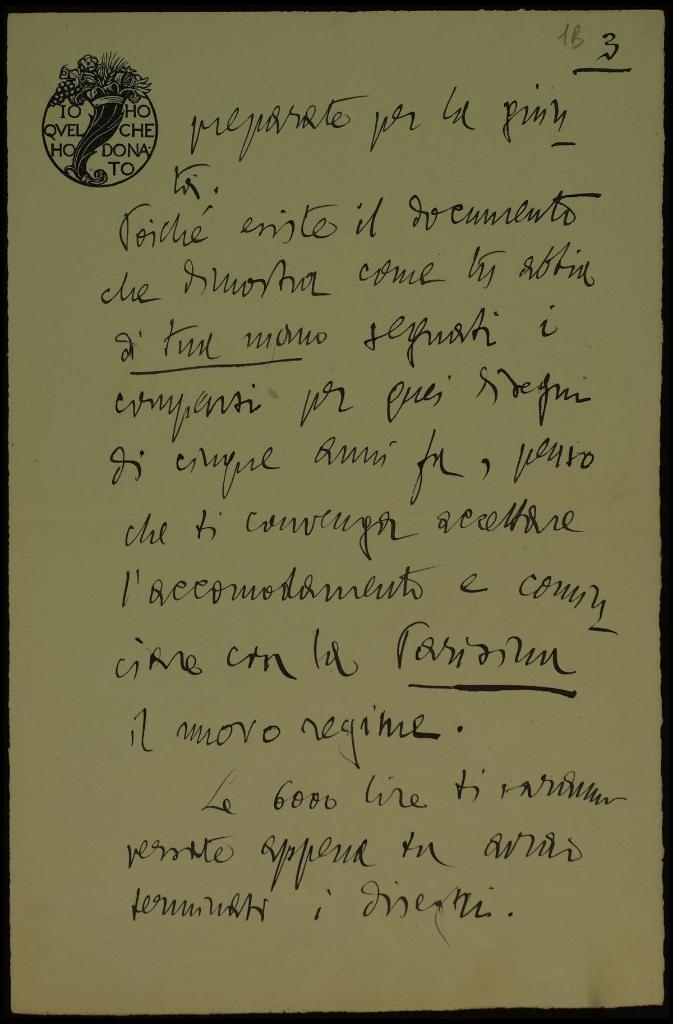 1B 3
IO HO
QVEL CHE
HO DONA
TO
preparate per la giun
ta.
Poiché esiste il documento
che dimostra come tu abbia
di tua mano segnati i
compensi per quei disegni
di cinque anni fa, penso
che ti convenga accettare
l'accomodamento e comin
ciare con la Parisina
il nuovo regime.
Le 6000 lire ti saranno
versate appena tu avrai
terminati i disegni.